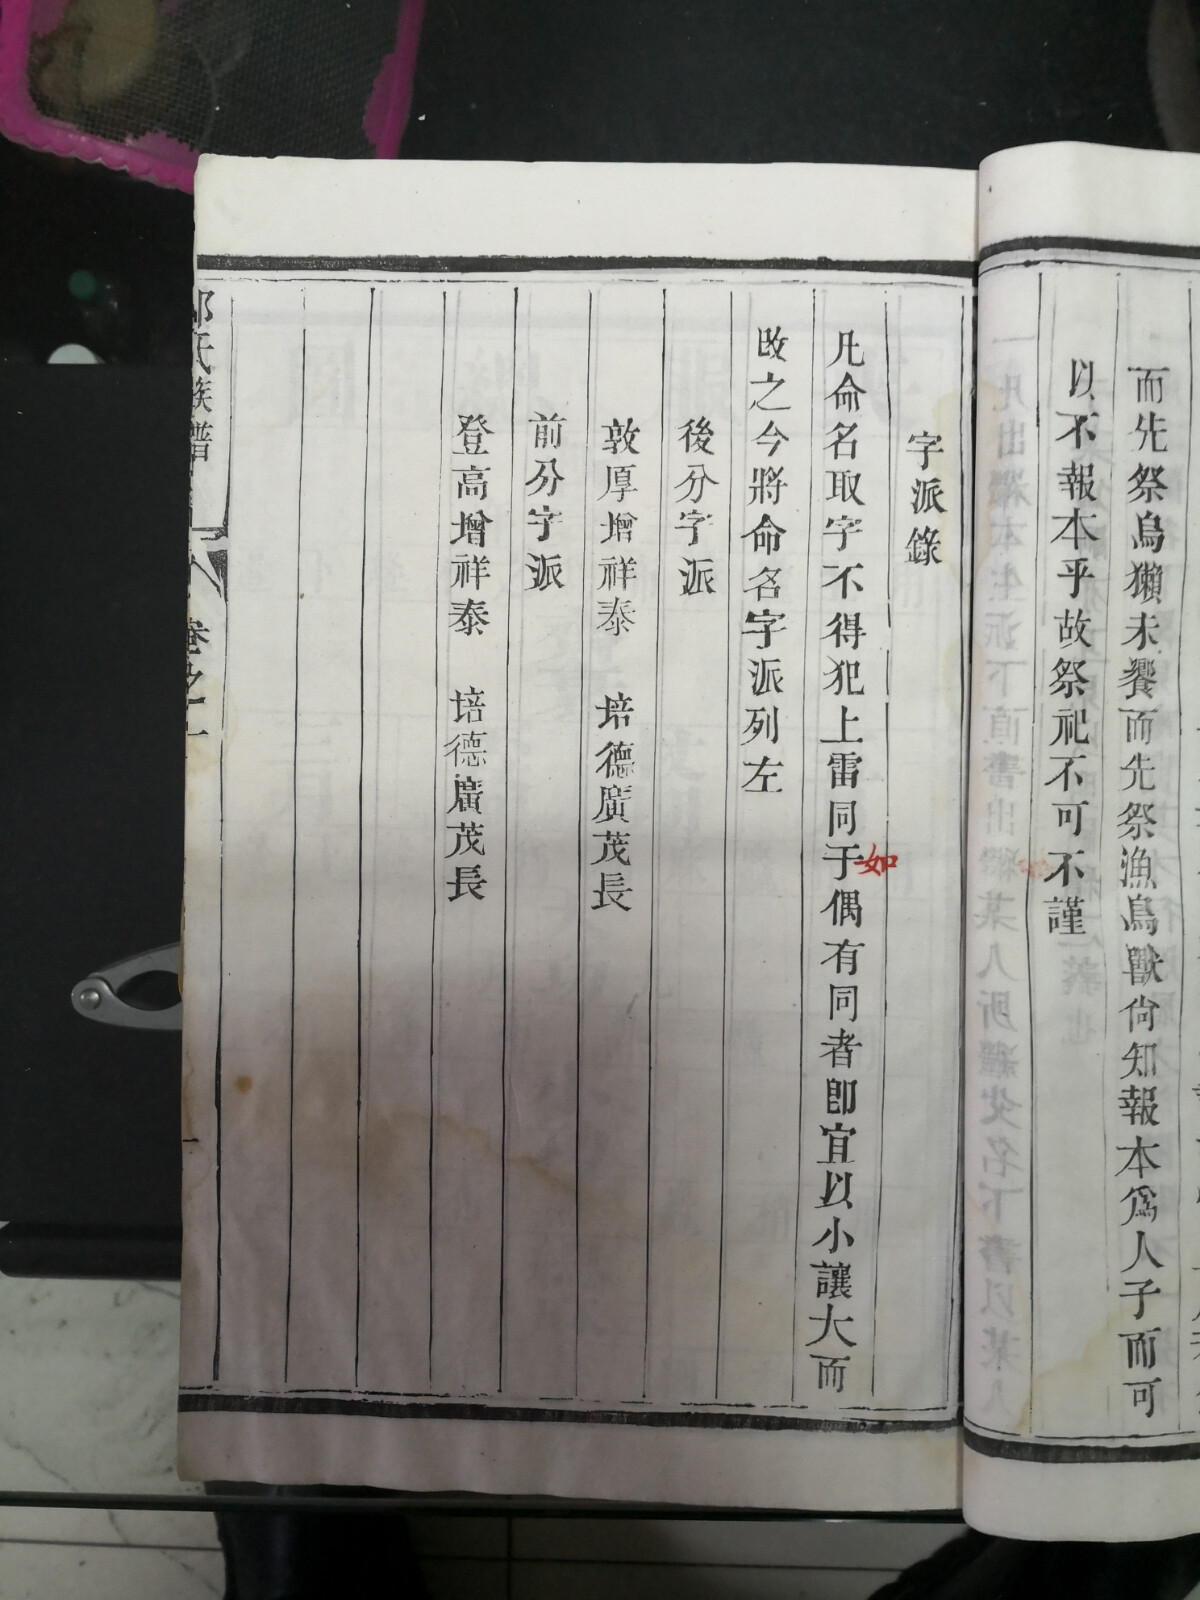 而先祭鳥獺未饗而先祭漁鳥獸尙知報本爲人子而可
以不報本乎故祭祀不可不謹
字派錄
凡命名取字不得犯上雷同于偶有同者卽宜以小讓大而
如
改之今將命名字派列左
後分字派
敦厚增祥泰 培德廣茂長
前分字派
登高增祥泰 培德廣茂長
氏族譜 卷之